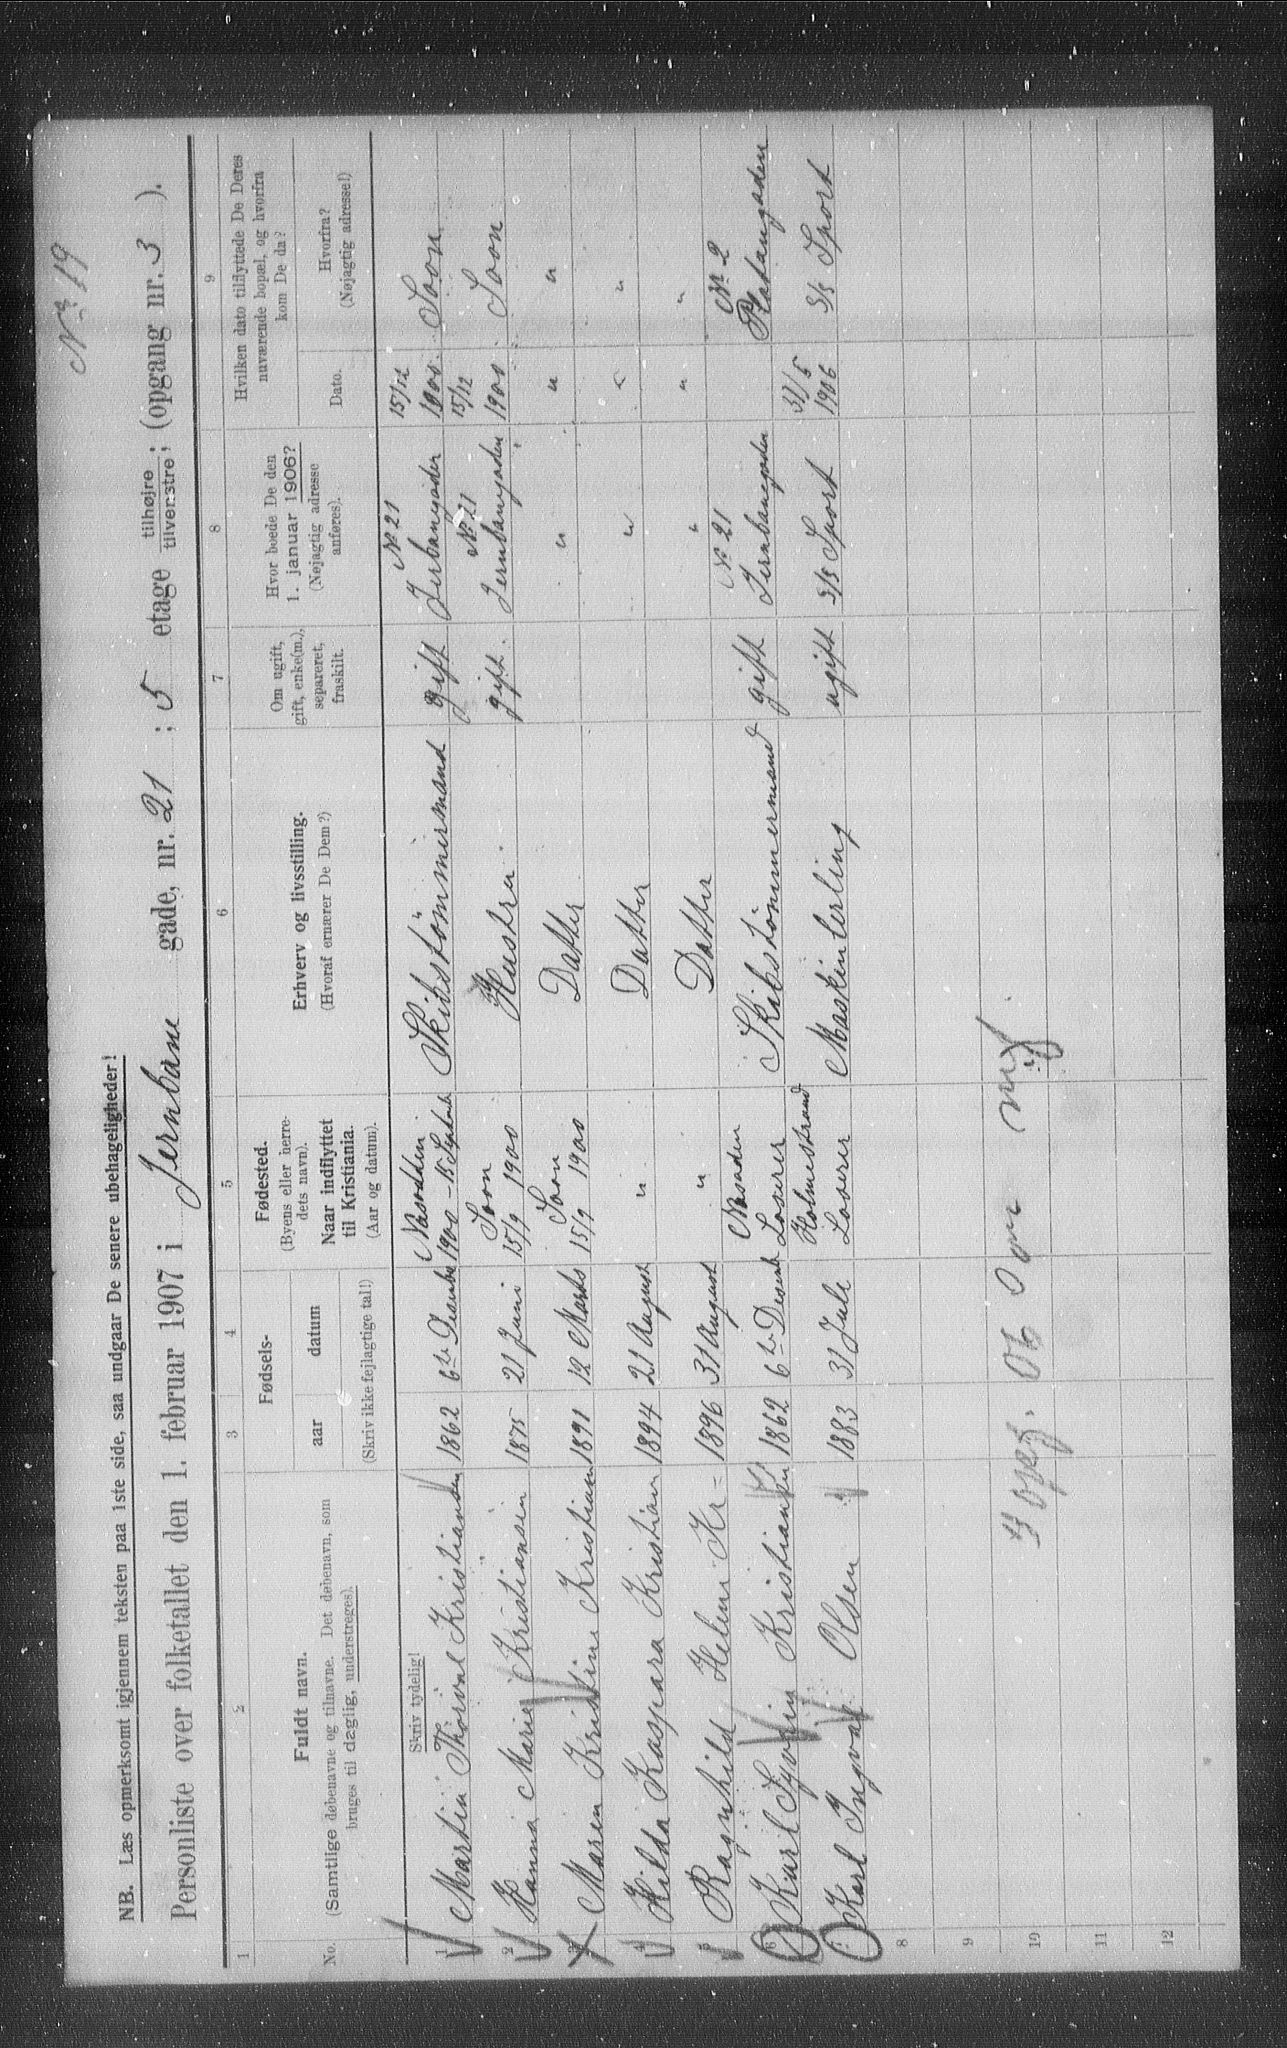 No 19
NB. Læs opmerksomt igjennem teksten paa 1ste side, saa undgaar De senere ubehageligheder!
Personliste over folketallet den 1. februar 1907 i Jernbane gade, nr. 21 ; 5 etage tilhøjre tilvenstre ; (opgang nr. 3 ).
1 2 3 4 5 6 7 8 9
No.
Fuldt navn.
(Samtlige døbenavne og tilnavne. Det døbenavn, som
bruges til daglig, understreges).
Fødsels-
aar datum
(Skriv ikke fejlagtige tal!)
Fødested.
(Byens eller herre-
dets navn).
Naar indflyttet
til Kristiania.
(Aar og datum).
Erhverv og livsstilling.
(Hvoraf ernærer De Dem?)
Om ugift,
gift, enke(m.),
separeret,
fraskilt.
Hvor boede De den
1. januar 1906?
(Nøjagtig adresse
anføres).
Hvilken dato tilflyttede De Deres
nuværende bopæl, og hvorfra
kom De da?
Dato.
Hvorfra?
(Nøjagtig adresse!)
Skriv tydelig!
1 Martin Thorval Kristiansen 1862 6te Desember 1900 - 15 Skibstömmermand gift No 21 Jerbanegaden 15/12 1900. Soon
2 Hanna Marie Kristiansen 1875 21 Juni Soon 15/9 1900 Hustru gift. No 21 Jernbanegaden 15/12 1900 Soon
3 Maren Kristine Kristiansen 1891 12 Marts Soon 15/9 1900 Datter " " "
4 Hilda Kaspara Kristian 1894 21 August " Datter " " "
5 Ragnhild Helene Kr = 1896 31 August " Datter " " "
6 Karl Kristiansen 1862 6te Desemb Loserer Skibstömmermand gift No 21 Jernbanegaden No 2 Platougaden
7 Karl Ingval Olsen 1883 31 Jule Holmestrand Loserer Maskinterling ugift S/S Sport 31/5 1906 S/S Sport
8
9
10
11
12